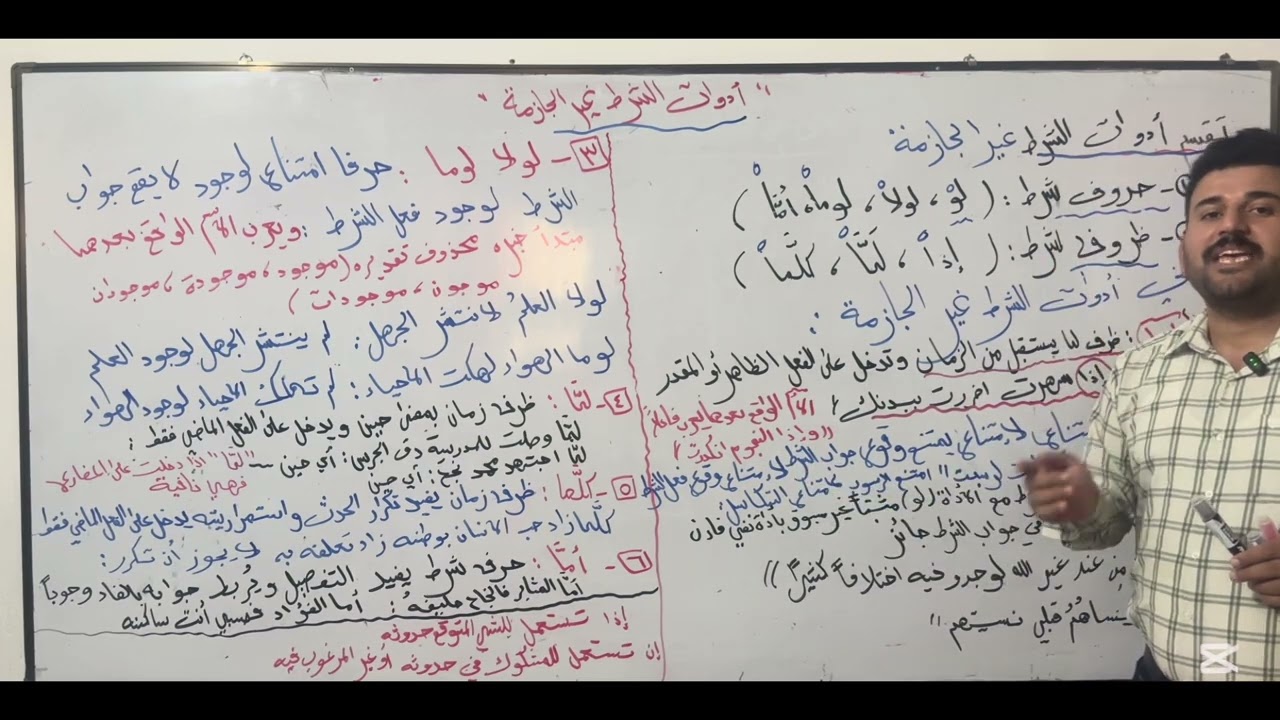 " أدوات الشرط غير الجازمة "
تقسم أدوات الشرط غير الجازمة:
حروف شرط: ( لوْ، لولاْ، لوماْ، أمّاْ )
ظروف شرط: ( إذاْ، لمّاْ، كلّماْ )
أدوات الشرط غير الجازمة:
: ظرف لما يستقبل من الزمان وتدخل على الفعل الظاهر أو المقدر
إذا سهرت اضررت ببدنك /
الاسم الواقع بعدها
((وإذا النجوم انكدرت))
لامتناع يمتنع وقوع جواب الشرط لامتناع وقوع فعل الشرط
مع الأداة (لو)
في جواب الشرط جائز
من عند غير الله لوجدوا فيه اختلافاً كثيراً ))
ينساهم قلبي نسيتهم "
٣- لولا لوما : حرفا امتناع لوجود لا يقع جواب
الشرط لوجود فعل الشرط : ويعرب الاسم الواقع بعدهما
مبتدأ خبره محذوف تقديره (موجود، موجودة، موجودان
موجودن، موجودات )
لولا العلمُ لانتشر الجهل: لم ينتشر الجهل لوجود العلم
لوما الهواء لهلكت الاحياء: لم تهلك الاحياء لوجود الهواء
٤- لمّا: ظرف زمان بمعنى حين ويدخل على الفعل الماضي فقط:
لمّا وصلت للمدرسة دق الجرس: أي حين
لمّا اجتهد محمد نجح: أي حين
"لمّا" إذا دخلت على المضارع
فهي نافية
٥- كلّما: ظرف زمان يفيد تكرار الحدث واستمراريته يدخل على الفعل الماضي فقط
كلّما زاد حب الانسان بوطنه زاد تعلقه به لا يجوز أن تكرر:
٦- أمّا: حرف شرط يفيد التفصيل ويُربط جوابه بالفاء وجوباً
أمّا المثابر فالنجاح حليفهُ: أما الفؤاد فحسبي أنت ساكنه
إذا تستعمل للشيء المتوقع حدوثه
إن تستعمل للمشكوك في حدوثه أو غير المرغوب فيه